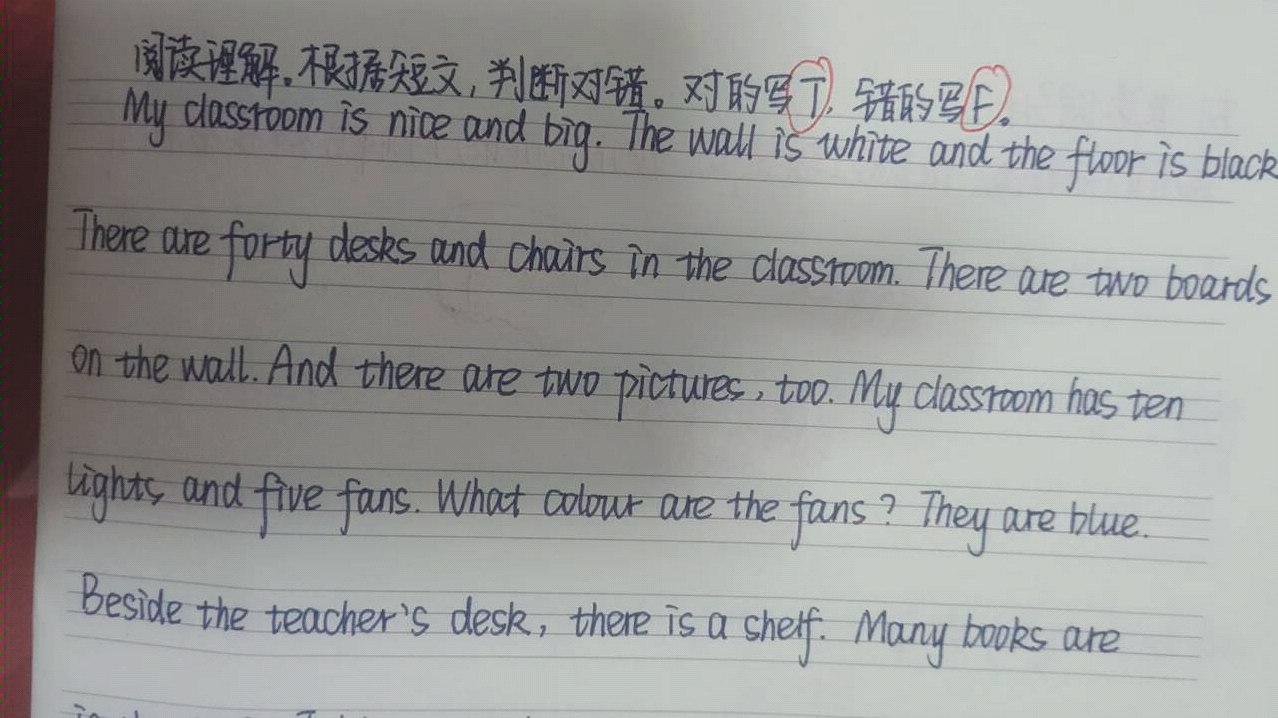 阅读理解。根据短文,判断对错。对的写T,错的写F。
My classroom is nice and big. The wall is white and the floor is black
There are forty desks and chairs in the classroom. There are two boards
on the wall. And there are two pictures, too. My classroom has ten
lights and five fans. What colour are the fans? They are blue.
Beside the teacher's desk, there is a shelf. Many books are